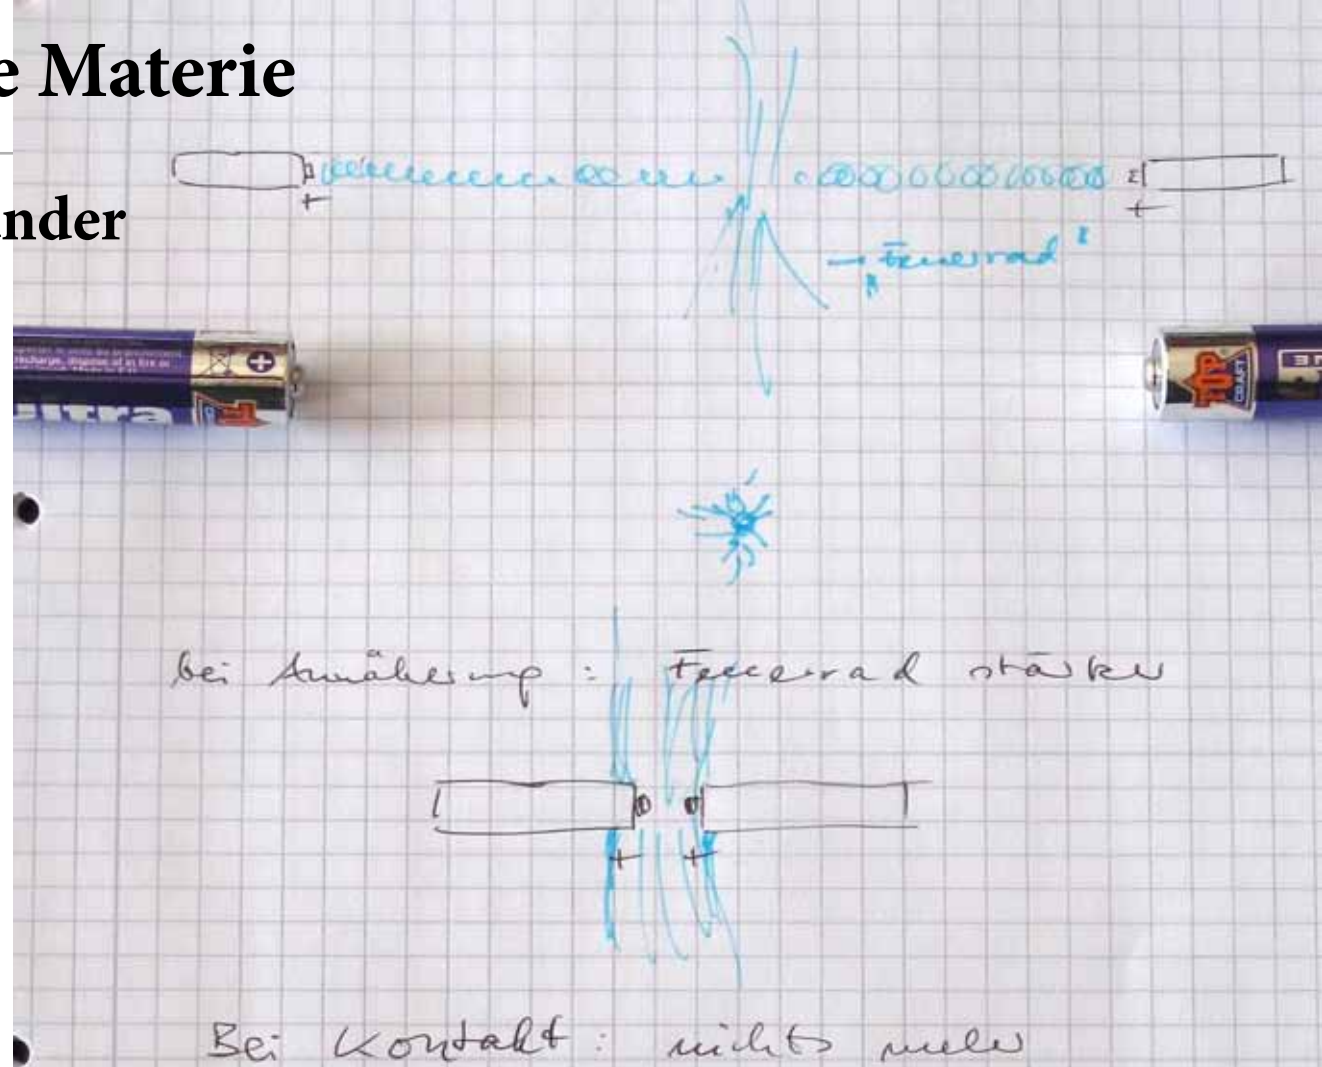 e Materie
nder
+
+
→ "Feuerrad"
+
ultra
TOP
CRAFT
bei Annäherung : Feuerrad stärker
+
+
Bei Kontakt : nichts mehr